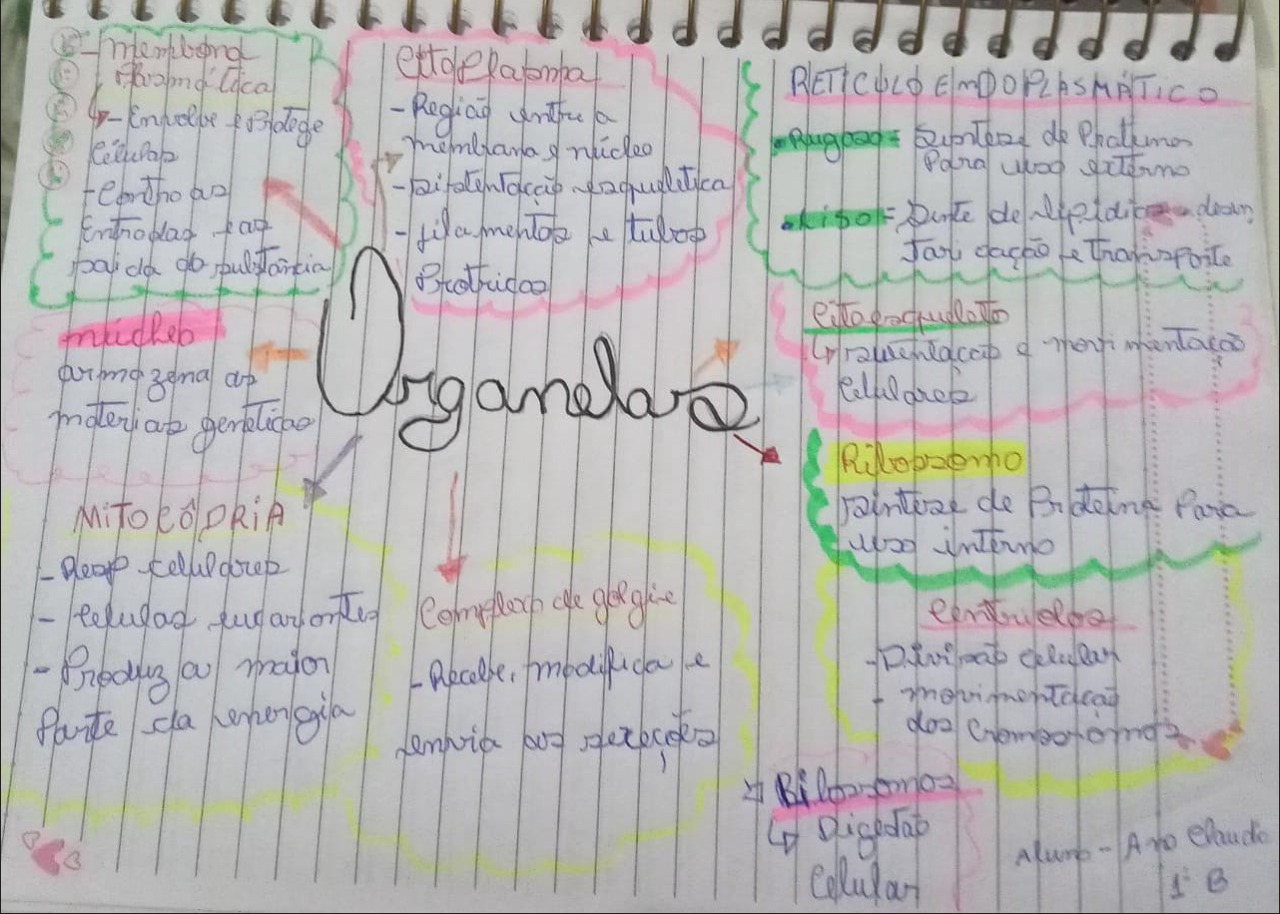 Membrana
Plasmática
- Envolve e Protege
Células
- Contro as
Entradas e as
saida da substância
citoplasma
- Região entre a
membrana e núcleo
- sistentação esquelética
- filamentos e tubos
Protricos
RETICULO ENDOPLASMÁTICO
Rugoso = Sintese de Protuno
Para uso externo
Liso =
de lipidios
e transporte
núcleo
armazena as
materias genéticas
Organelas
citoesqueleto
sustentação e movimentação
celulares
Ribossomo
sintese de Proteína Para
uso interno
MITOCÔDRIA
- Resp celulares
- celulas eucariontes
- Produz a maior
Parte da energia
Complexo de golgi
- Recebe, modifica e
envia as
Centriolos
- Divisão celular
- movimentação
dos Cromosômos
Ribossomos
Digestão
Celular
Aluno - Ana Claudia
1º B